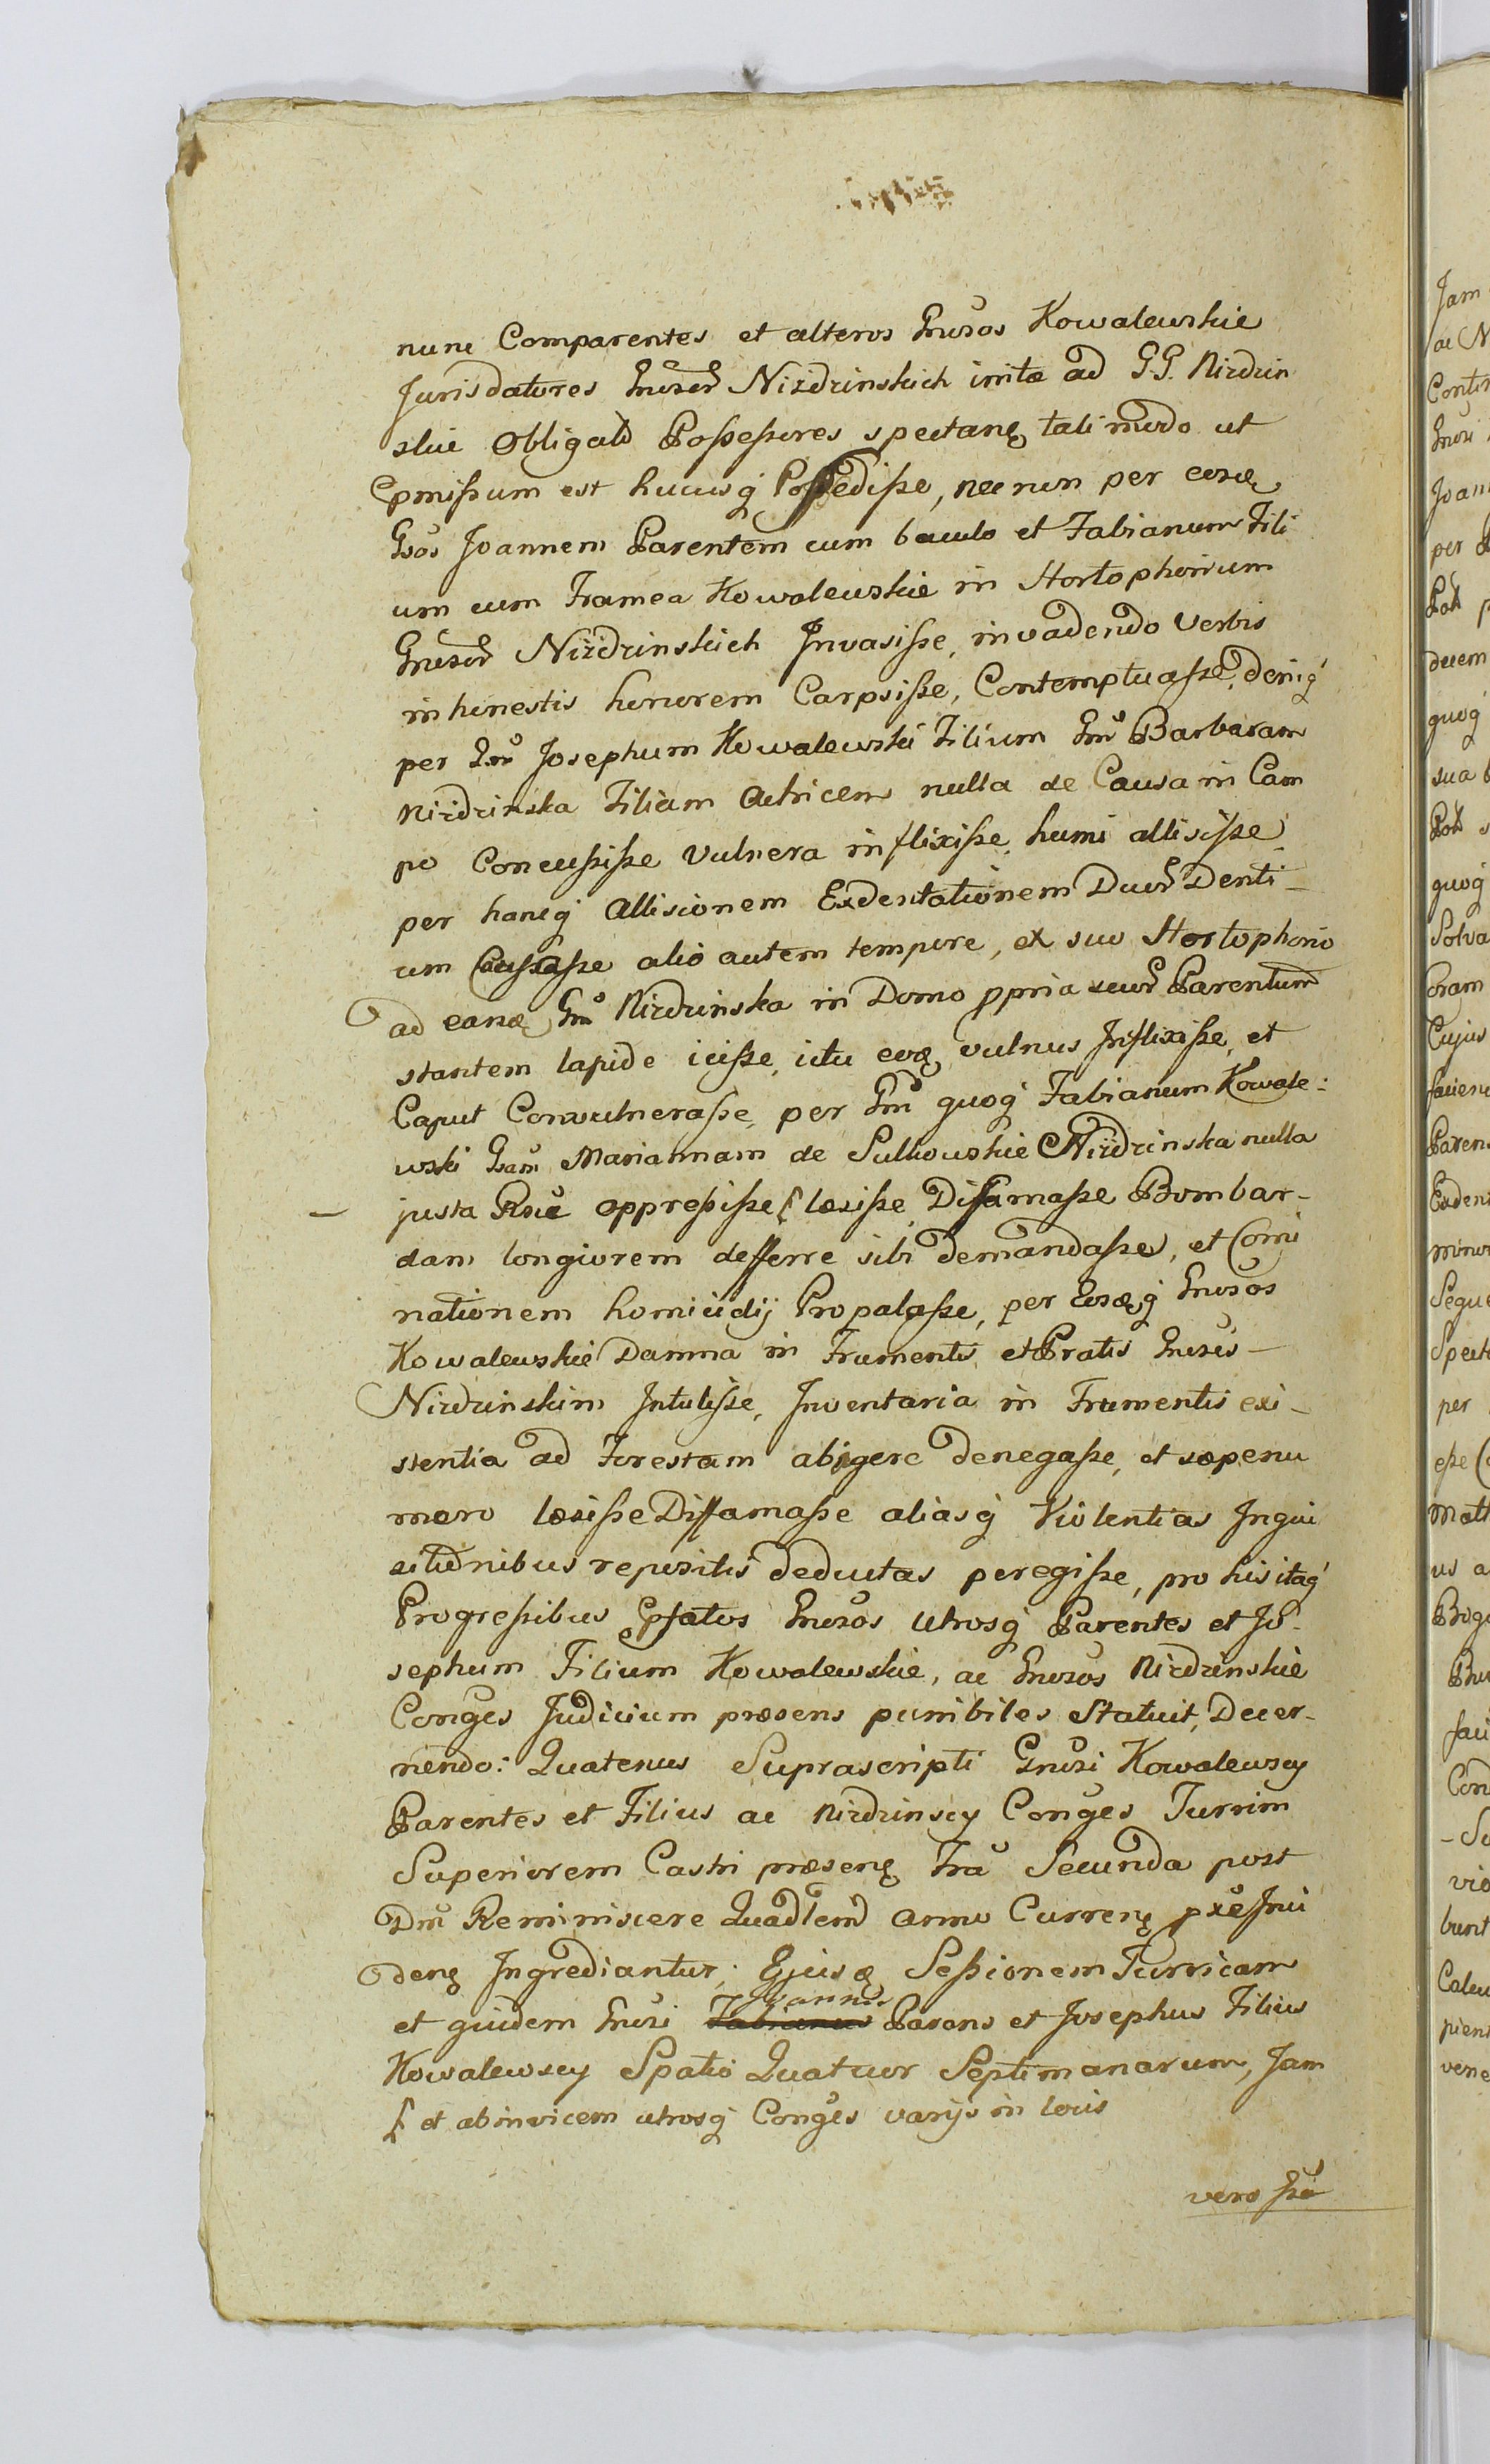 nunc Comparentes et alteros Gnrosos Kowalewskie
Jurisdatores Gnrosor Nizdzinskich initae ad G.G. Nizdzin
skie Obligat Possessores spectan tali modo ut
pmissum est hucusq Possedisse, nec non per eosd
Gsos Joannem Parentem cum baculo et Fabianum Fili
um cum Framea Kowalewskie in Hortophorium
Gnrosor Nizdzinskich Invasisse, invadendo Verbis
inhonestis honorem Carpsisse, Contemptuasse, deniq
per Gnm Josephum Kowalewski Filium Gnm Barbaram
Nizdzinska Filiam Actricem nulla de Causa in Cam
po Concussisse Vulnera inflixisse, humi allisisse,
per hancq Allisionem Exdentationem Duor Denti-
um Caussasse alio autem tempore, ex suo Hortophorio
ad eand Gnm Nizdzinska in Domo ppria suor Parentum
stantem lapide icisse, ictu eoq vulnus Inflixisse, et
Caput Convulnerasse, per Gnm quoq Fabianum Kowale:
wski Gsam Mariannam de Sulkowskie Nizdzinska nulla
justa Rne oppressisse, laesisse, Diffamasse Bombar-
dam longiorem defferre sibi demandasse, et Comi
nationem homicidij Propalasse, per Eosdq Gnrosos
Kowalewskie Damna in Frumentis et Pratis Gnrosis-
Nizdzinskim Intulisse, Inventaria in Frumentis exi-
stentia ad Forestam abigere denegasse, et saepenu
mero laesisse Diffamasse aliasq Violentias Inqui
sitionibus repositis deductas peregisse, pro his itaq
Progressibus Pfatos Gnrosos utrosq Parentes et Jo-
sephum Filium Kowalewskie, ac Gnrosos Nizdzinskie
Conges Judicium praesens punibiles Statuit, Decer-
nendo: Quatenus Suprascripti Gnrosi Kowalewscy
Parentes et Filius ac Nizdzinscy Conges Turrim
Superiorem Castri praesen Fra Secunda post
Dm Reminiscere Quadlem anno Curren pxe Inci
den Ingrediantur, Ejusd Sessionem Turricam
et quidem Gnrosi Joannes Parens et Josephus Filius
Kowalewscy Spatio Quatuor Septimanarum, Jam
et abinvicem utrosq Conges varijs in locis
vero